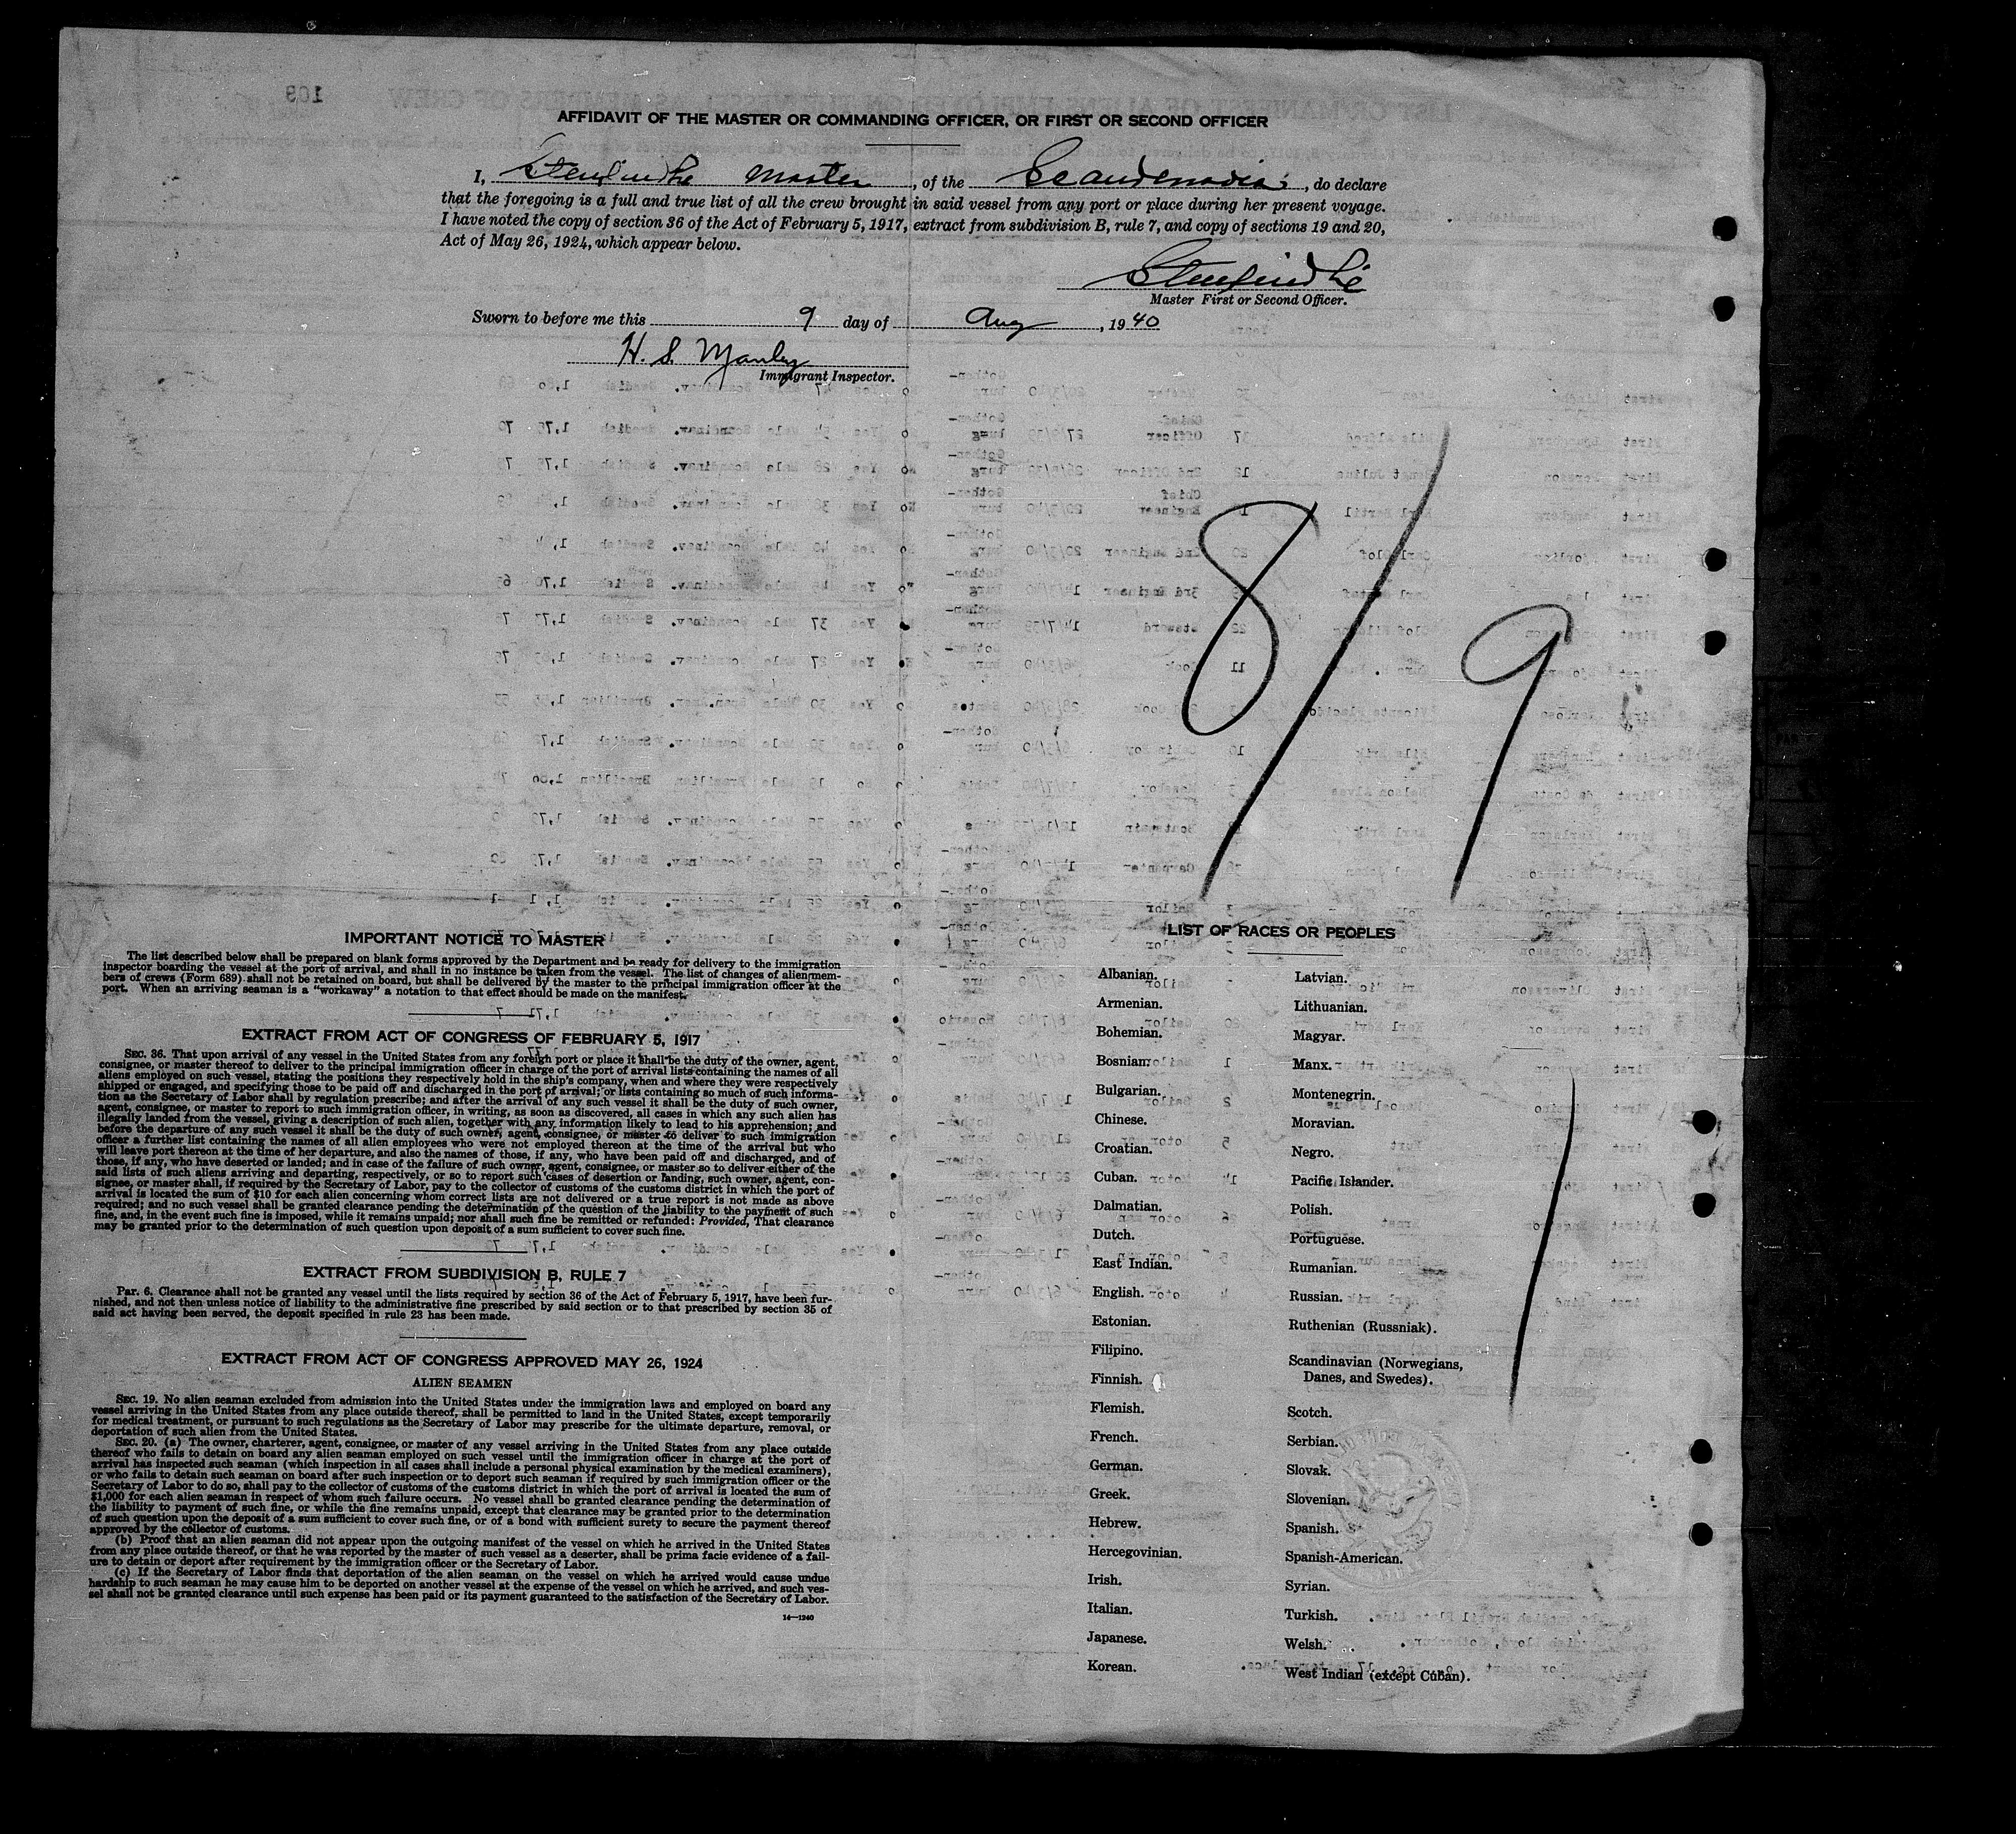 AFFIDAVIT OF THE MASTER OR COMMANDING OFFICER, OR FIRST OR SECOND OFFICER
I, Master, of the Scandenavia, do declare
that the foregoing is a full and true list of all the crew brought in said vessel from any port or place during her present voyage.
I have noted the copy of section 36 of the Act of February 5, 1917, extract from subdivision B, rule 7, and copy of sections 19 and 20,
Act of May 26, 1924, which appear below.
Master First or Second Officer.
Sworn to before me this 9 day of Aug, 1940
H. S. Manley
Immigrant Inspector.
8/9
IMPORTANT NOTICE TO MASTER
The list described below shall be prepared on blank forms approved by the Department and be ready for delivery to the immigration
inspector boarding the vessel at the port of arrival, and shall in no instance be taken from the vessel. The list of changes of alien mem-
bers of crews (Form 689) shall not be retained on board, but shall be delivered by the master to the principal immigration officer at the
port. When an arriving seaman is a "workaway" a notation to that effect should be made on the manifest.
EXTRACT FROM ACT OF CONGRESS OF FEBRUARY 5, 1917
SEC. 36. That upon arrival of any vessel in the United States from any foreign port or place it shall be the duty of the owner, agent,
consignee, or master thereof to deliver to the principal immigration officer in charge of the port of arrival lists containing the names of all
aliens employed on such vessel, stating the positions they respectively hold in the ship's company, when and where they were respectively
shipped or engaged, and specifying those to be paid off and discharged in the port of arrival; or lists containing so much of such informa-
tion as the Secretary of Labor shall by regulation prescribe; and after the arrival of any such vessel it shall be the duty of such owner,
agent, consignee, or master to report to such immigration officer, in writing, as soon as discovered, all cases in which any such alien has
illegally landed from the vessel, giving a description of such alien, together with any information likely to lead to his apprehension; and
before the departure of any such vessel it shall be the duty of such owner, agent, consignee, or master to deliver to such immigration
officer a further list containing the names of all alien employees who were not employed thereon at the time of the arrival but who
will leave port thereon at the time of her departure, and also the names of those, if any, who have been paid off and discharged, and of
those, if any, who have deserted or landed; and in case of the failure of such owner, agent, consignee, or master so to deliver either of the
said lists of such aliens arriving and departing, respectively, or so to report such cases of desertion or landing, such owner, agent, con-
signee, or master shall, if required by the Secretary of Labor, pay to the collector of customs of the customs district in which the port of
arrival is located the sum of $10 for each alien concerning whom correct lists are not delivered or a true report is not made as above
required; and no such vessel shall be granted clearance pending the determination of the question of the liability to the payment of such
fine, and, in the event such fine is imposed, while it remains unpaid; nor shall such fine be remitted or refunded: Provided, That clearance
may be granted prior to the determination of such question upon deposit of a sum sufficient to cover such fine.
EXTRACT FROM SUBDIVISION B, RULE 7
Par. 6. Clearance shall not be granted any vessel until the lists required by section 36 of the Act of February 5, 1917, have been fur-
nished, and not then unless notice of liability to the administrative fine prescribed by said section or to that prescribed by section 35 of
said act having been served, the deposit specified in rule 23 has been made.
EXTRACT FROM ACT OF CONGRESS APPROVED MAY 26, 1924
ALIEN SEAMEN
SEC. 19. No alien seaman excluded from admission into the United States under the immigration laws and employed on board any
vessel arriving in the United States from any place outside thereof, shall be permitted to land in the United States, except temporarily
for medical treatment, or pursuant to such regulations as the Secretary of Labor may prescribe for the ultimate departure, removal, or
deportation of such alien from the United States.
SEC. 20. (a) The owner, charterer, agent, consignee, or master of any vessel arriving in the United States from any place outside
thereof who fails to detain on board any alien seaman employed on such vessel until the immigration officer in charge at the port of
arrival has inspected such seaman (which inspection in all cases shall include a personal physical examination by the medical examiners),
or who fails to detain such seaman on board after such inspection or to deport such seaman if required by such immigration officer or the
Secretary of Labor to do so, shall pay to the collector of customs of the customs district in which the port of arrival is located the sum of
$1,000 for each alien seaman in respect of whom such failure occurs. No vessel shall be granted clearance pending the determination of
the liability to payment of such fine, or while the fine remains unpaid, except that clearance may be granted prior to the determination
of such question upon the deposit of a sum sufficient to cover such fine, or of a bond with sufficient surety to secure the payment thereof
approved by the collector of customs.
(b) Proof that an alien seaman did not appear upon the outgoing manifest of the vessel on which he arrived in the United States
from any place outside thereof, or that he was reported by the master of such vessel as a deserter, shall be prima facie evidence of a fail-
ure to detain or deport after requirement by the immigration officer or the Secretary of Labor.
(c) If the Secretary of Labor finds that deportation of the alien seaman on the vessel on which he arrived would cause undue
hardship to such seaman he may cause him to be deported on another vessel at the expense of the vessel on which he arrived, and such ves-
sel shall not be granted clearance until such expense has been paid or its payment guaranteed to the satisfaction of the Secretary of Labor.
14—1240
LIST OF RACES OR PEOPLES
Albanian.
Armenian.
Bohemian.
Bosnian.
Bulgarian.
Chinese.
Croatian.
Cuban.
Dalmatian.
Dutch.
East Indian.
English.
Estonian.
Filipino.
Finnish.
Flemish.
French.
German.
Greek.
Hebrew.
Hercegovinian.
Irish.
Italian.
Japanese.
Korean.
Latvian.
Lithuanian.
Magyar.
Manx.
Montenegrin.
Moravian.
Negro.
Pacific Islander.
Polish.
Portuguese.
Rumanian.
Russian.
Ruthenian (Russniak).
Scandinavian (Norwegians,
Danes, and Swedes).
Scotch.
Serbian.
Slovak.
Slovenian.
Spanish.
Spanish-American.
Syrian.
Turkish.
Welsh.
West Indian (except Cuban).